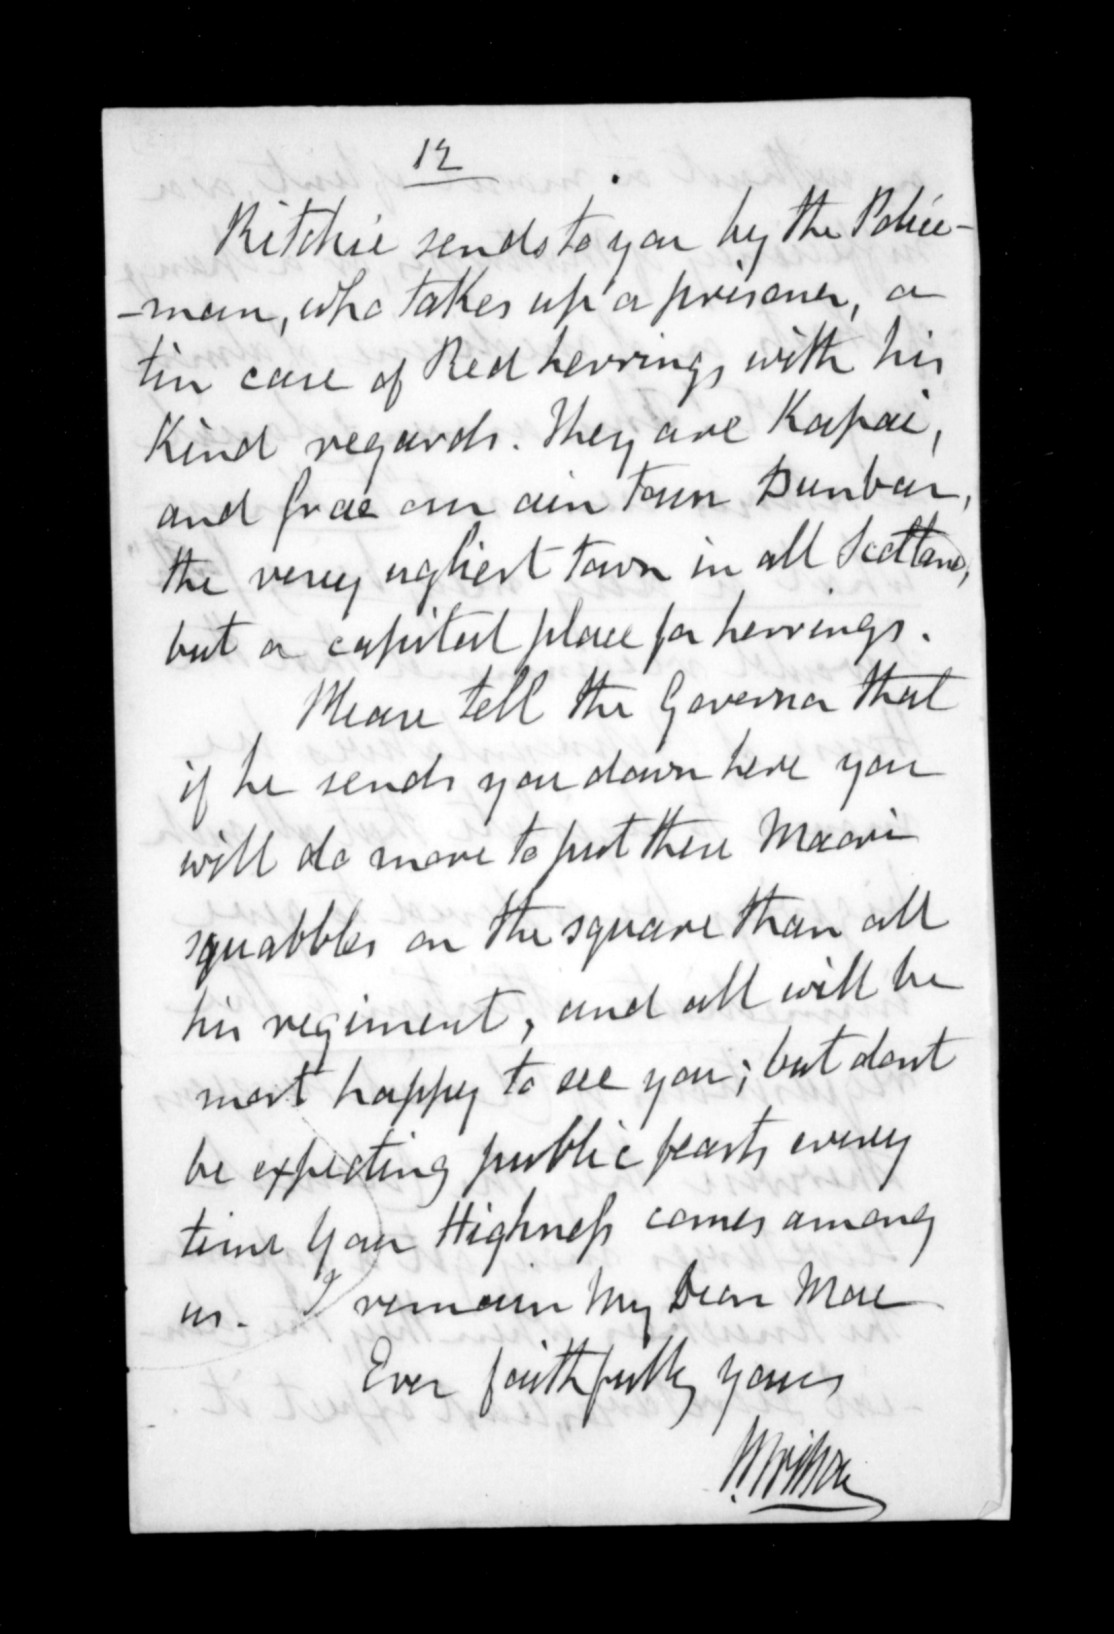 12
Ritchie sends to you by the Police-
-man, who takes up a prisoner, a
tin case of Red herrings with his
Kind regards. They are Kapai,
and frae our ain toun Dunbar,
the very ugliest town in all Scotland,
but a capital place for herrings.
Please tell the Governor that
if he sends you down here you
will do more to put these Maori
squabbles on the square than all
his regiment, and all will be
most happy to see you; but dont
be expecting public feasts every
time Your Highness comes among
us. I remain My Dear Mac
Ever faithfully yours